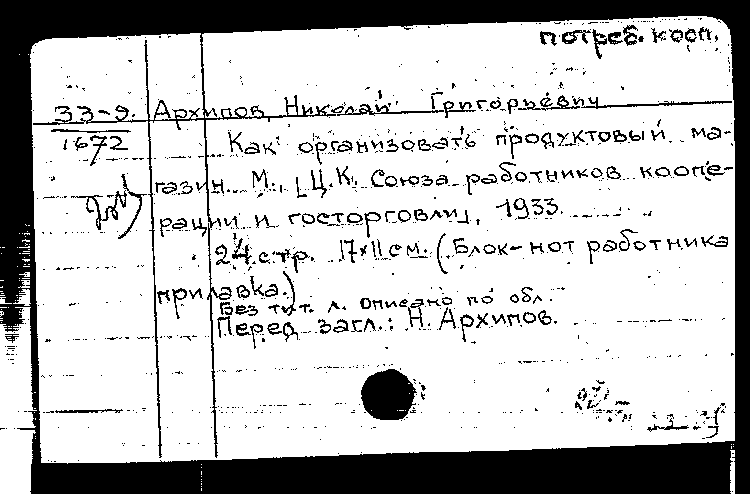 потреб. кооп.
33-9. Архипов, Николай Григорьевич
1672
Как организовать продуктовый ма-
газин. М., [Ц.К. Союза работников коопе-
рации и госторговли], 1933.
24 стр. 17×11 см. (Блок-нот работника
прилавка.)
Без тит. л. Описано по обл.
Перед загл.: Н. Архипов.